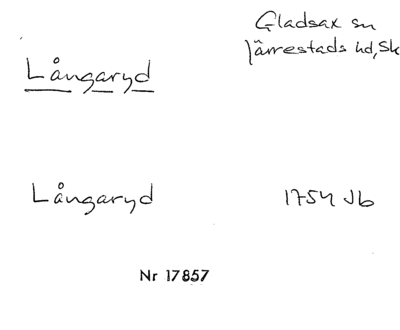 Gladsax sn
Järrestads hd, Sk
Långaryd
Långaryd 1754 Jb
Nr 17857